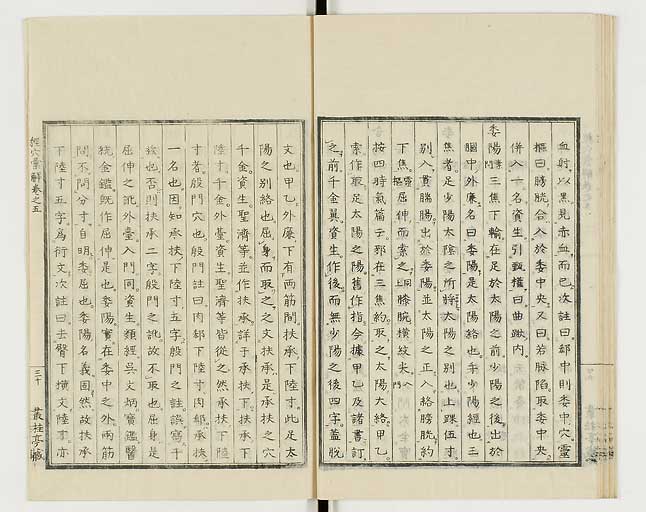 血射以黑見赤血而已次註曰郄中則委中穴靈
樞曰膀胱合入於委中央又曰若膝陷取委中央
併入一名資生引甄權曰曲𨄔內
委陽 三焦下輸在足於太陽之前少陽之後出於
膕中外廉名曰委陽是太陽絡也手少陽經也三
焦者足少陽太陰之所將太陽之別也上踝伍寸
別入貫腨腸出於委陽並太陽之正入絡膀胱約
下焦 屈伸而索之 膝腕橫紋尖
按四時氣篇子邪在三焦約取之太陽大絡甲乙
索作取足太陽之陽舊作指今據甲乙及諸書訂
之前千金翼資生作後而無少陽之後四字蓋脫
文也甲乙外廉下有兩筋間扶承下陸寸此足太
陽之別絡也屈身而取之之文扶承是承扶之穴
千金資生聖濟等並作扶承詳于承扶下扶承下
陸寸千金外臺資生聖濟等皆從之然承扶下陸
寸者殷門穴也殷門註曰肉郄下陸寸肉郄承扶
一名也因知承扶下陸寸五字殷門之註誤寫于
玆也否則扶承二字殷門之訛故不取也屈身是
屈伸之訛外臺入門同資生類經吳文炳寶鑑醫
統金鑑旣作屈伸是也委陽實在委中之外兩筋
間不問分寸自明委屈也委陽名義固然故扶承
下陸寸五字爲衍文次註曰去臀下橫文陸寸亦
經穴彙解卷之五
三十
叢桂亭藏